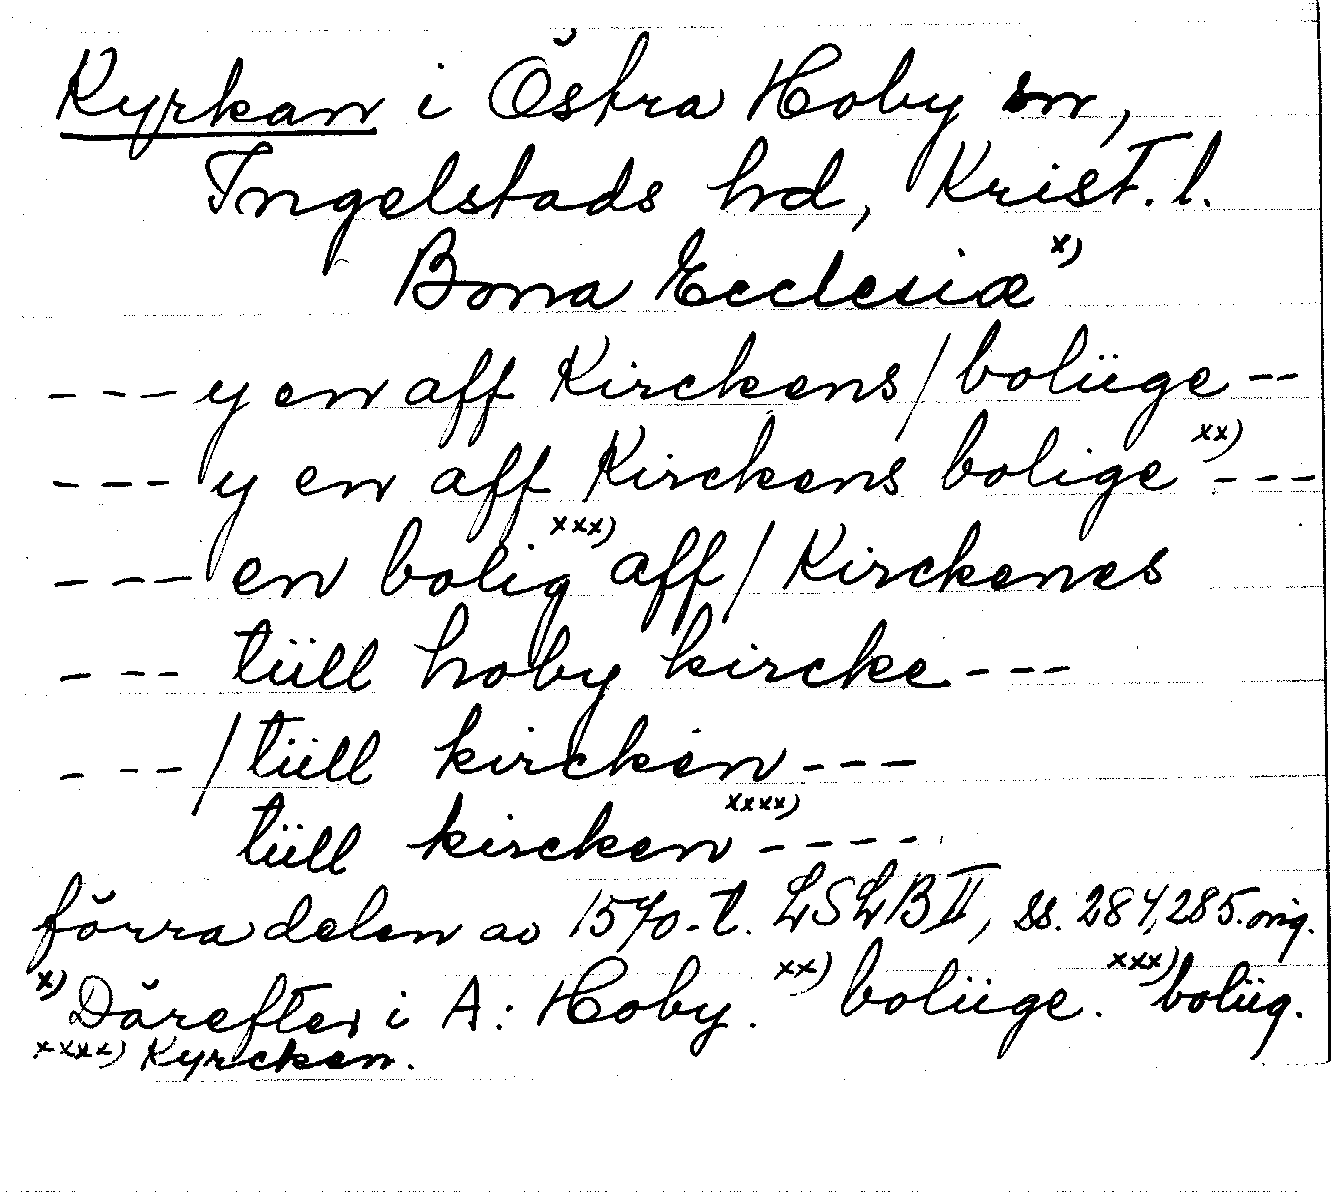 Kyrkan i Östra Hoby sn,
Ingelstads hd, Krist. l.
Bona Ecclesiæ x)
--- y en aff Kirckens / bolüge --
--- y en aff Kirckens bolige xx) ---
--- en bolig xxx) aff / Kirckenes
--- tüll hoby kircke ---
--- / tüll kircken ---
tüll kircken xxxx) ----
förra delen av 1570-t. LSLB II, ss. 284, 285. orig.
x) Därefter i A: Hoby. xx) bolüge. xxx) bolüg.
xxxx) Kyrcken.